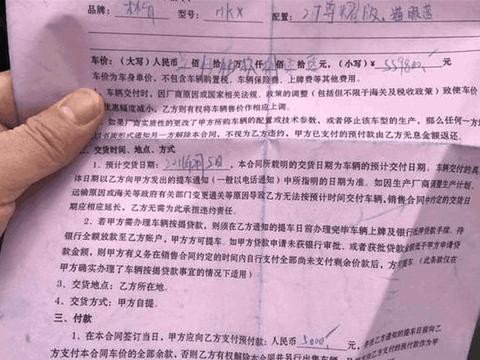 品牌: 林肯 型号: MKX 配置: 2.7尊耀版,
车价:(大写)人民币 佰 拾 万 仟 佰 拾 元,(小写)¥ 559800 元,
车价为车身单价,不包含车辆购置税、车辆保险费、上牌费等其他费用。
车辆交付时,因厂商原因或国家相关法规、政策的调整(包括但不限于海关及税收政策)致使车价
优惠幅度减小,乙方有权将车辆售价作相应上调。
如果厂商实质性的更改了甲方所购车辆的配置或技术参数,或者停止该车型的生产,那么任何一方
以书面形式通知另一方解除本合同,不视为乙方违约,甲方已支付的预付款由乙方无息全额返还。
二、交货时间、地点、方式
1. 预计交货日期: 5日,本合同所载明的交货日期为车辆的预计交付日期。车辆交付的具
体日期以乙方向甲方发出的提车通知(一般以电话通知)中所指明的日期为准。如因生产厂商调整生产计划、
运输原因或海关等政府有关部门变更通关等原因导致乙方无法按预计时间交付车辆,销售合同中约定的交货日
期应相应延长,乙方无需为此承担违约责任。
2. 若甲方需办理车辆按揭贷款,则须在乙方通知的提车日前办理完毕车辆上牌及银行抵押贷款手续,待
银行全额放款至乙方账户,甲方方可提车。如甲方贷款申请未获银行审批、或者获批贷款金额低于甲方申请贷
款金额,则甲方有义务在销售合同约定的时间内自行支付全部尚未支付剩余价款后,方可提车。(此条款仅在
甲方确实办理了车辆按揭贷款事宜的情况下适用)
3. 交货地点:乙方所在地。
4. 交货方式:甲方自提。
三、付款
1. 在本合同签订当日,甲方应向乙方支付预付款:人民币 5000 元,
方支付本合同车价的全部余款,否则乙方有权解除本合同并另行出售车辆